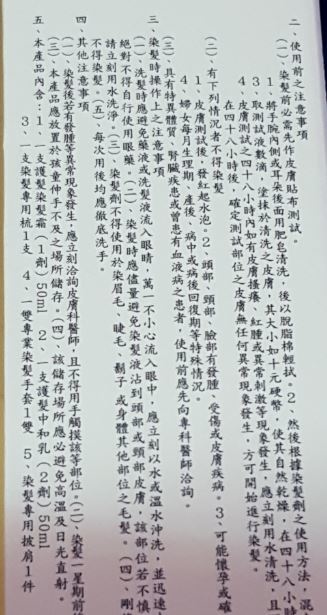 二、使用前之注意事項
(一)、染髮前必需先作皮膚貼布測試。
1、將手腕內側或耳朵後面用肥皂清洗，後以脫脂棉輕拭。2、然後根據染髮劑之使用方法，混
3、取測試液數滴，塗抹於清洗之皮膚，其大小如十元硬幣，使其自然乾燥，在四十八小時
4、皮膚測試之四十八小時內如有皮膚搔癢、紅腫或異常刺激等現象發生，應立刻用水清洗，且
在四十八小時後，確定測試部位之皮膚無任何異常現象發生，方可開始進行染髮。
(二)、有下列情況者不得染髮
1、皮膚測試後，發紅起水泡。2、頭部、頸部、臉部有發腫、受傷或皮膚疾病。3、可能懷孕或確
4、婦女每月生理期、產後、病中或病後回復期等特殊情況。
(三)、具有特異體質、腎臟疾患或曾患有血液病之患者，使用前應先向專科醫師洽詢。
三、染髮時操作上之注意事項
(一)、洗髮時應避免藥液或洗髮液流入眼睛，萬一不小心流入眼中，應立刻以水或溫水沖洗，並迅速
絕對不得自行使用眼藥。(二)、染髮時應儘量避免染髮液沾到頭部或頸部皮膚，該部位若不慎
請立刻用水洗淨。(三)、染髮劑不得使用於染眉毛、睫毛、鬍子或身體其他部位之毛髮。(四)、剛
不得染髮。(五)、每次用後均應徹底洗手。
四、其他注意事項
(一)、染髮後若有發腫等異常現象發生，應立刻洽詢皮膚科醫師，且不得用手觸摸該等部位。(二)、染髮一星期前
(三)、本產品應放置於孩童伸手不及之場所儲存。(四)、該儲存場所應必避免高溫及日光直射。
五、本產品內含：1、一支護髮染髮霜（1劑）50ml 2、一支護髮中和乳（2劑）50ml
3、一支染髮專用梳1支 4、一雙專業染髮手套1雙 5、染髮專用披肩1件